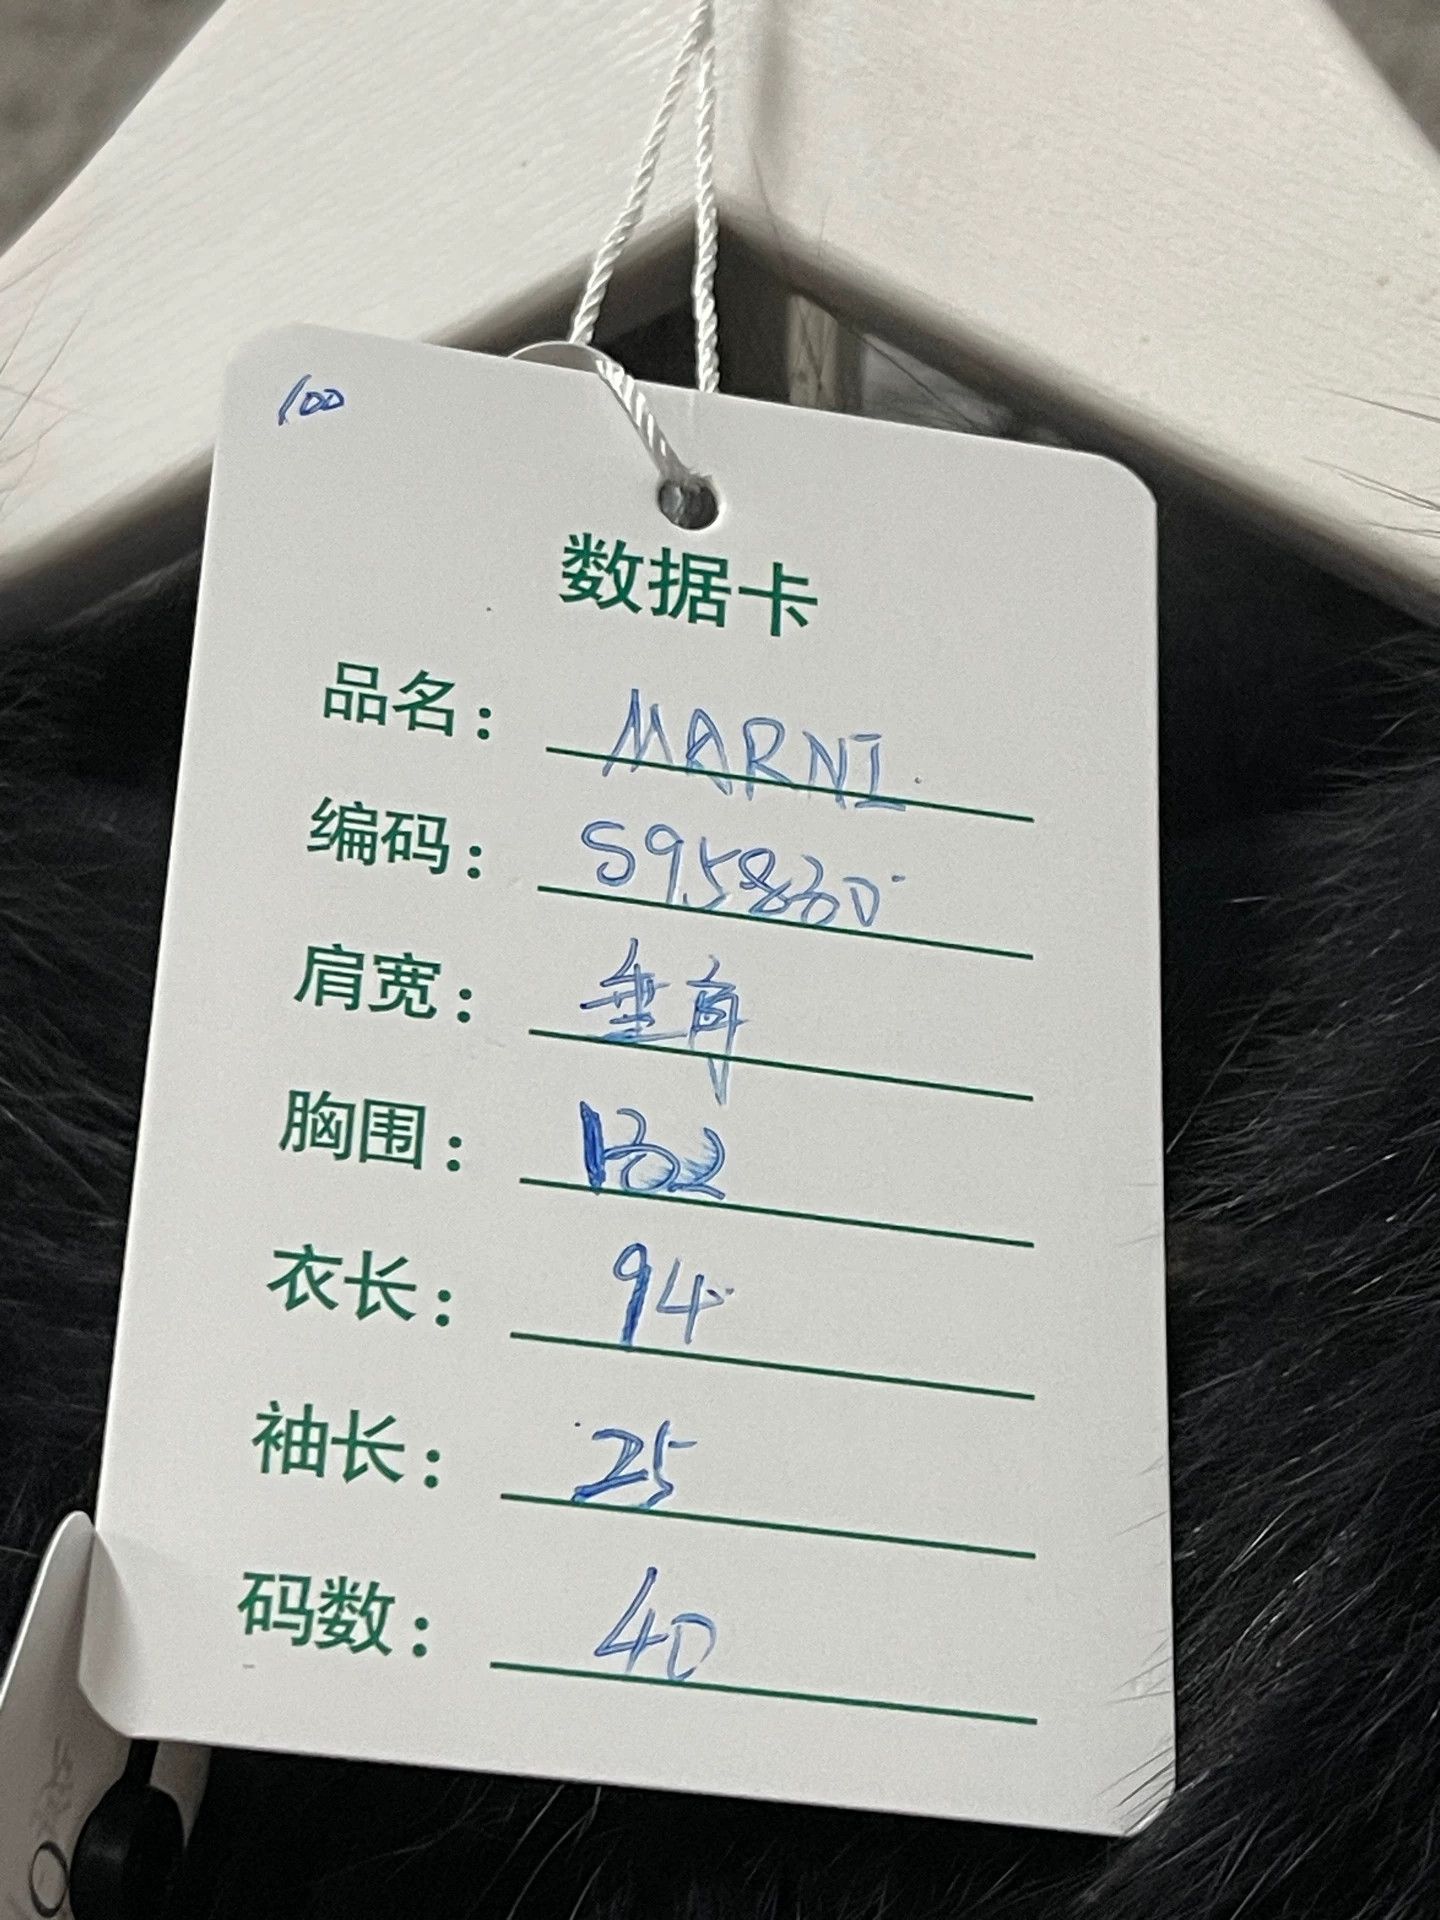 100
数据卡
品名: MARNI
编码: S95830
肩宽: 垂肩
胸围: 132
衣长: 94
袖长: 25
码数: 40